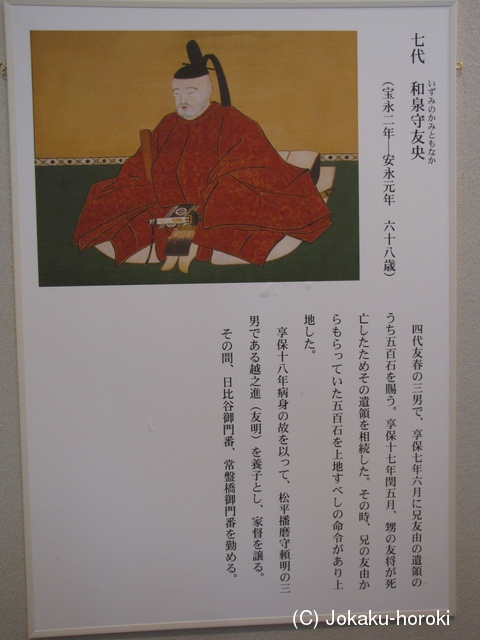 七代　和泉守友央
いずみのかみともなか
（宝永二年―安永元年　六十八歳）
四代友春の三男で、享保七年六月に兄友由の遺領の
うち五百石を賜う。享保十七年閏五月、甥の友将が死
亡したためその遺領を相続した。その時、兄の友由か
らもらっていた五百石を上地すべしの命令があり上
地した。
享保十八年病身の故を以って、松平播磨守頼明の三
男である越之進（友明）を養子とし、家督を譲る。
その間、日比谷御門番、常盤橋御門番を勤める。
(C) Jokaku-horoki